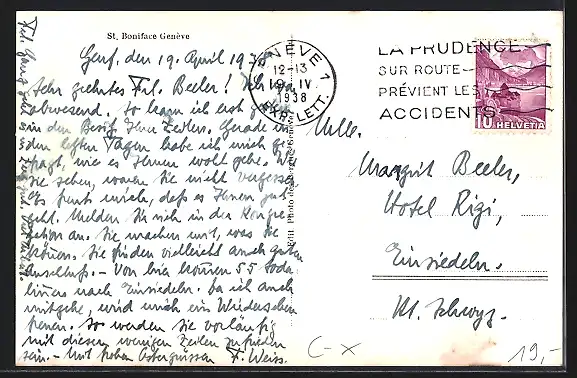 St. Boniface Genève
Genf, den 19. April 1938
Sehr geehrtes Frl. Beeler! Ich war
abwesend. So kam ich erst jetzt
in den Besitz Ihrer Zeilen. Gerade in
den letzten Tagen habe ich mich ge-
fragt, wie es Ihnen wohl gehe. Wie
Sie sehen, waren Sie nicht vergessen.
Es freut mich, dass es Ihnen gut
geht. Melden Sie sich in der Kongre-
gation an. Sie machen mit, was Sie
können. Sie finden vielleicht auch guten
Anschluss. - Von hier kommen 55 Soda-
linnen nach Einsiedeln. Da ich auch
mitgehe, wird mich ein Wiedersehen
freuen. So werden Sie vorläufig
mit diesen wenigen Zeilen zufrieden
sein. - Mit frohen Ostergrüssen F. Weiss.
GENÈVE 1
12-13
19. IV
1938
EXP. LETT.
LA PRUDENCE
SUR ROUTE
PRÉVIENT LES
ACCIDENTS
10 HELVETIA
Mlle.
Margrit Beeler,
Hotel Rigi,
Einsiedeln.
Kt. Schwyz.
C-x
19,-